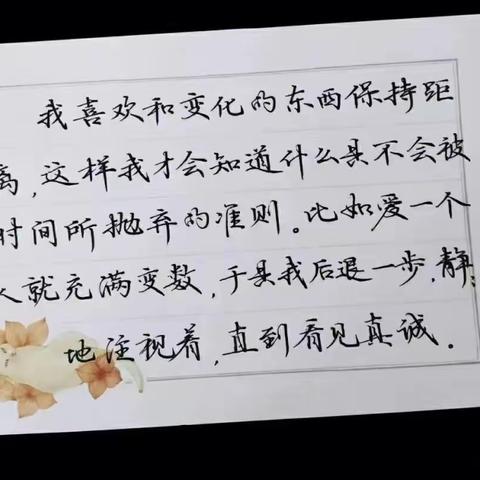 我喜欢和变化的东西保持距
离,这样我才会知道什么是不会被
时间所抛弃的准则。比如爱一个
人就充满变数,于是我后退一步,静
地注视着,直到看见真诚。